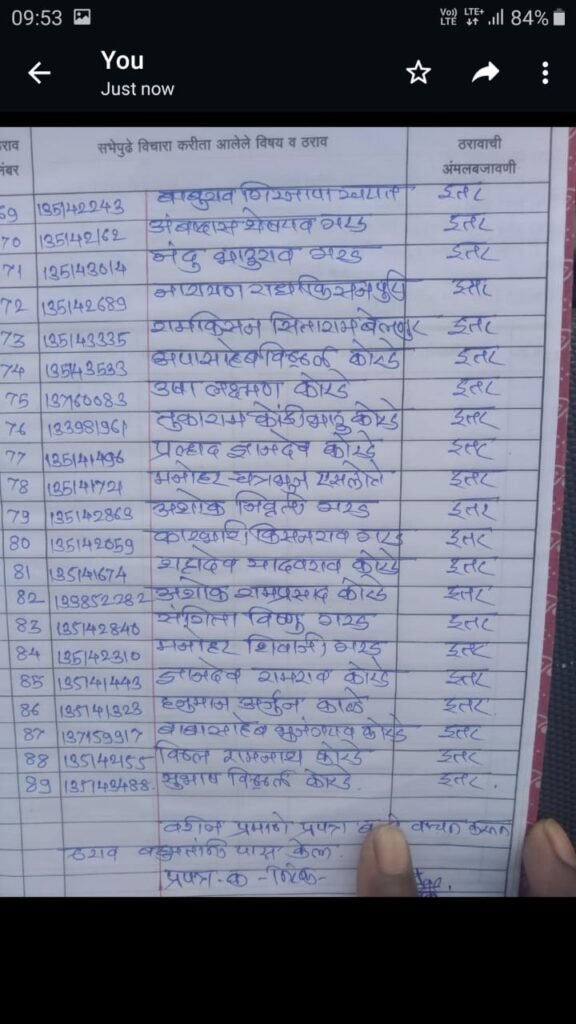 09:53 Vo) LTE LTE+ 84%
You
Just now
ठराव नंबर सभेपुढे विचारा करीता आलेले विषय व ठराव ठरावाची अंमलबजावणी
69 135142243 बाबुराव खरात इतर
70 135142162 अंबादास शेषराव गरड इतर
71 135143014 नंदु भाऊराव गरड इतर
72 135142689 नारायण राधाकिसन पुरि इतर
73 135143335 रामकिसन सिताराम बेलपुर इतर
74 135143533 अपासाहेब विठ्ठल कोरडे इतर
75 13760083 उषा लक्ष्मण कोरडे इतर
76 133981961 तुकाराम कोंडीभाऊ कोरडे इतर
77 135141496 प्रल्हाद ज्ञानदेव कोरडे इतर
78 135141721 मनोहर चत्रभूज इतर
79 135142863 अशोक निवृत्ती गरड इतर
80 135142059 किसनराव गरड इतर
81 135141674 शहादेव यादवराव कोरडे इतर
82 199852282 अशोक रामप्रसाद कोरडे इतर
83 135142840 संगिता विष्णु गरड इतर
84 135142310 मनोहर शिवाजी गरड इतर
85 135141443 ज्ञानदेव रामराव कोरडे इतर
86 135141323 हनुमान अर्जुन काळे इतर
87 137159917 बाबासाहेब भुजंगराव कोरडे इतर
88 135142155 विठ्ठल रामनाथ कोरडे इतर
89 135143488 सुभाष विठ्ठल कोरडे इतर
वरील प्रमाणे प्रपत्र वाचन करून
ठराव पास केला.
प्रपत्र-क